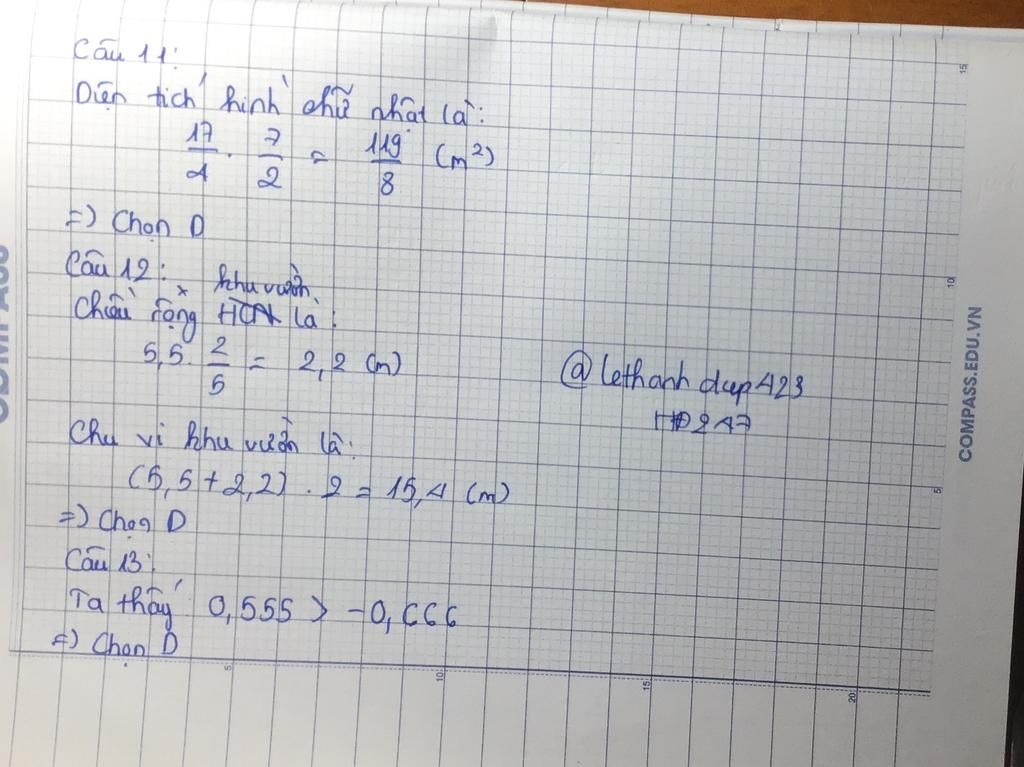 Câu 11:
Diện tích hình chữ nhật là:
17/4 . 7/2 = 119/8 (m²)
=) Chọn D
Câu 12:
khu vườn
Chiều rộng HCN là:
5,5. 2/5 = 2,2 (m)
@lethanhdup423
HĐ247
Chu vi khu vườn là:
(5,5+2,2) . 2 = 15,4 (m)
=) Chọn D
Câu 13:
Ta thấy 0,555 > -0,666
=) Chọn D
COMPASS.EDU.VN
5
10
15
20
5
10
15